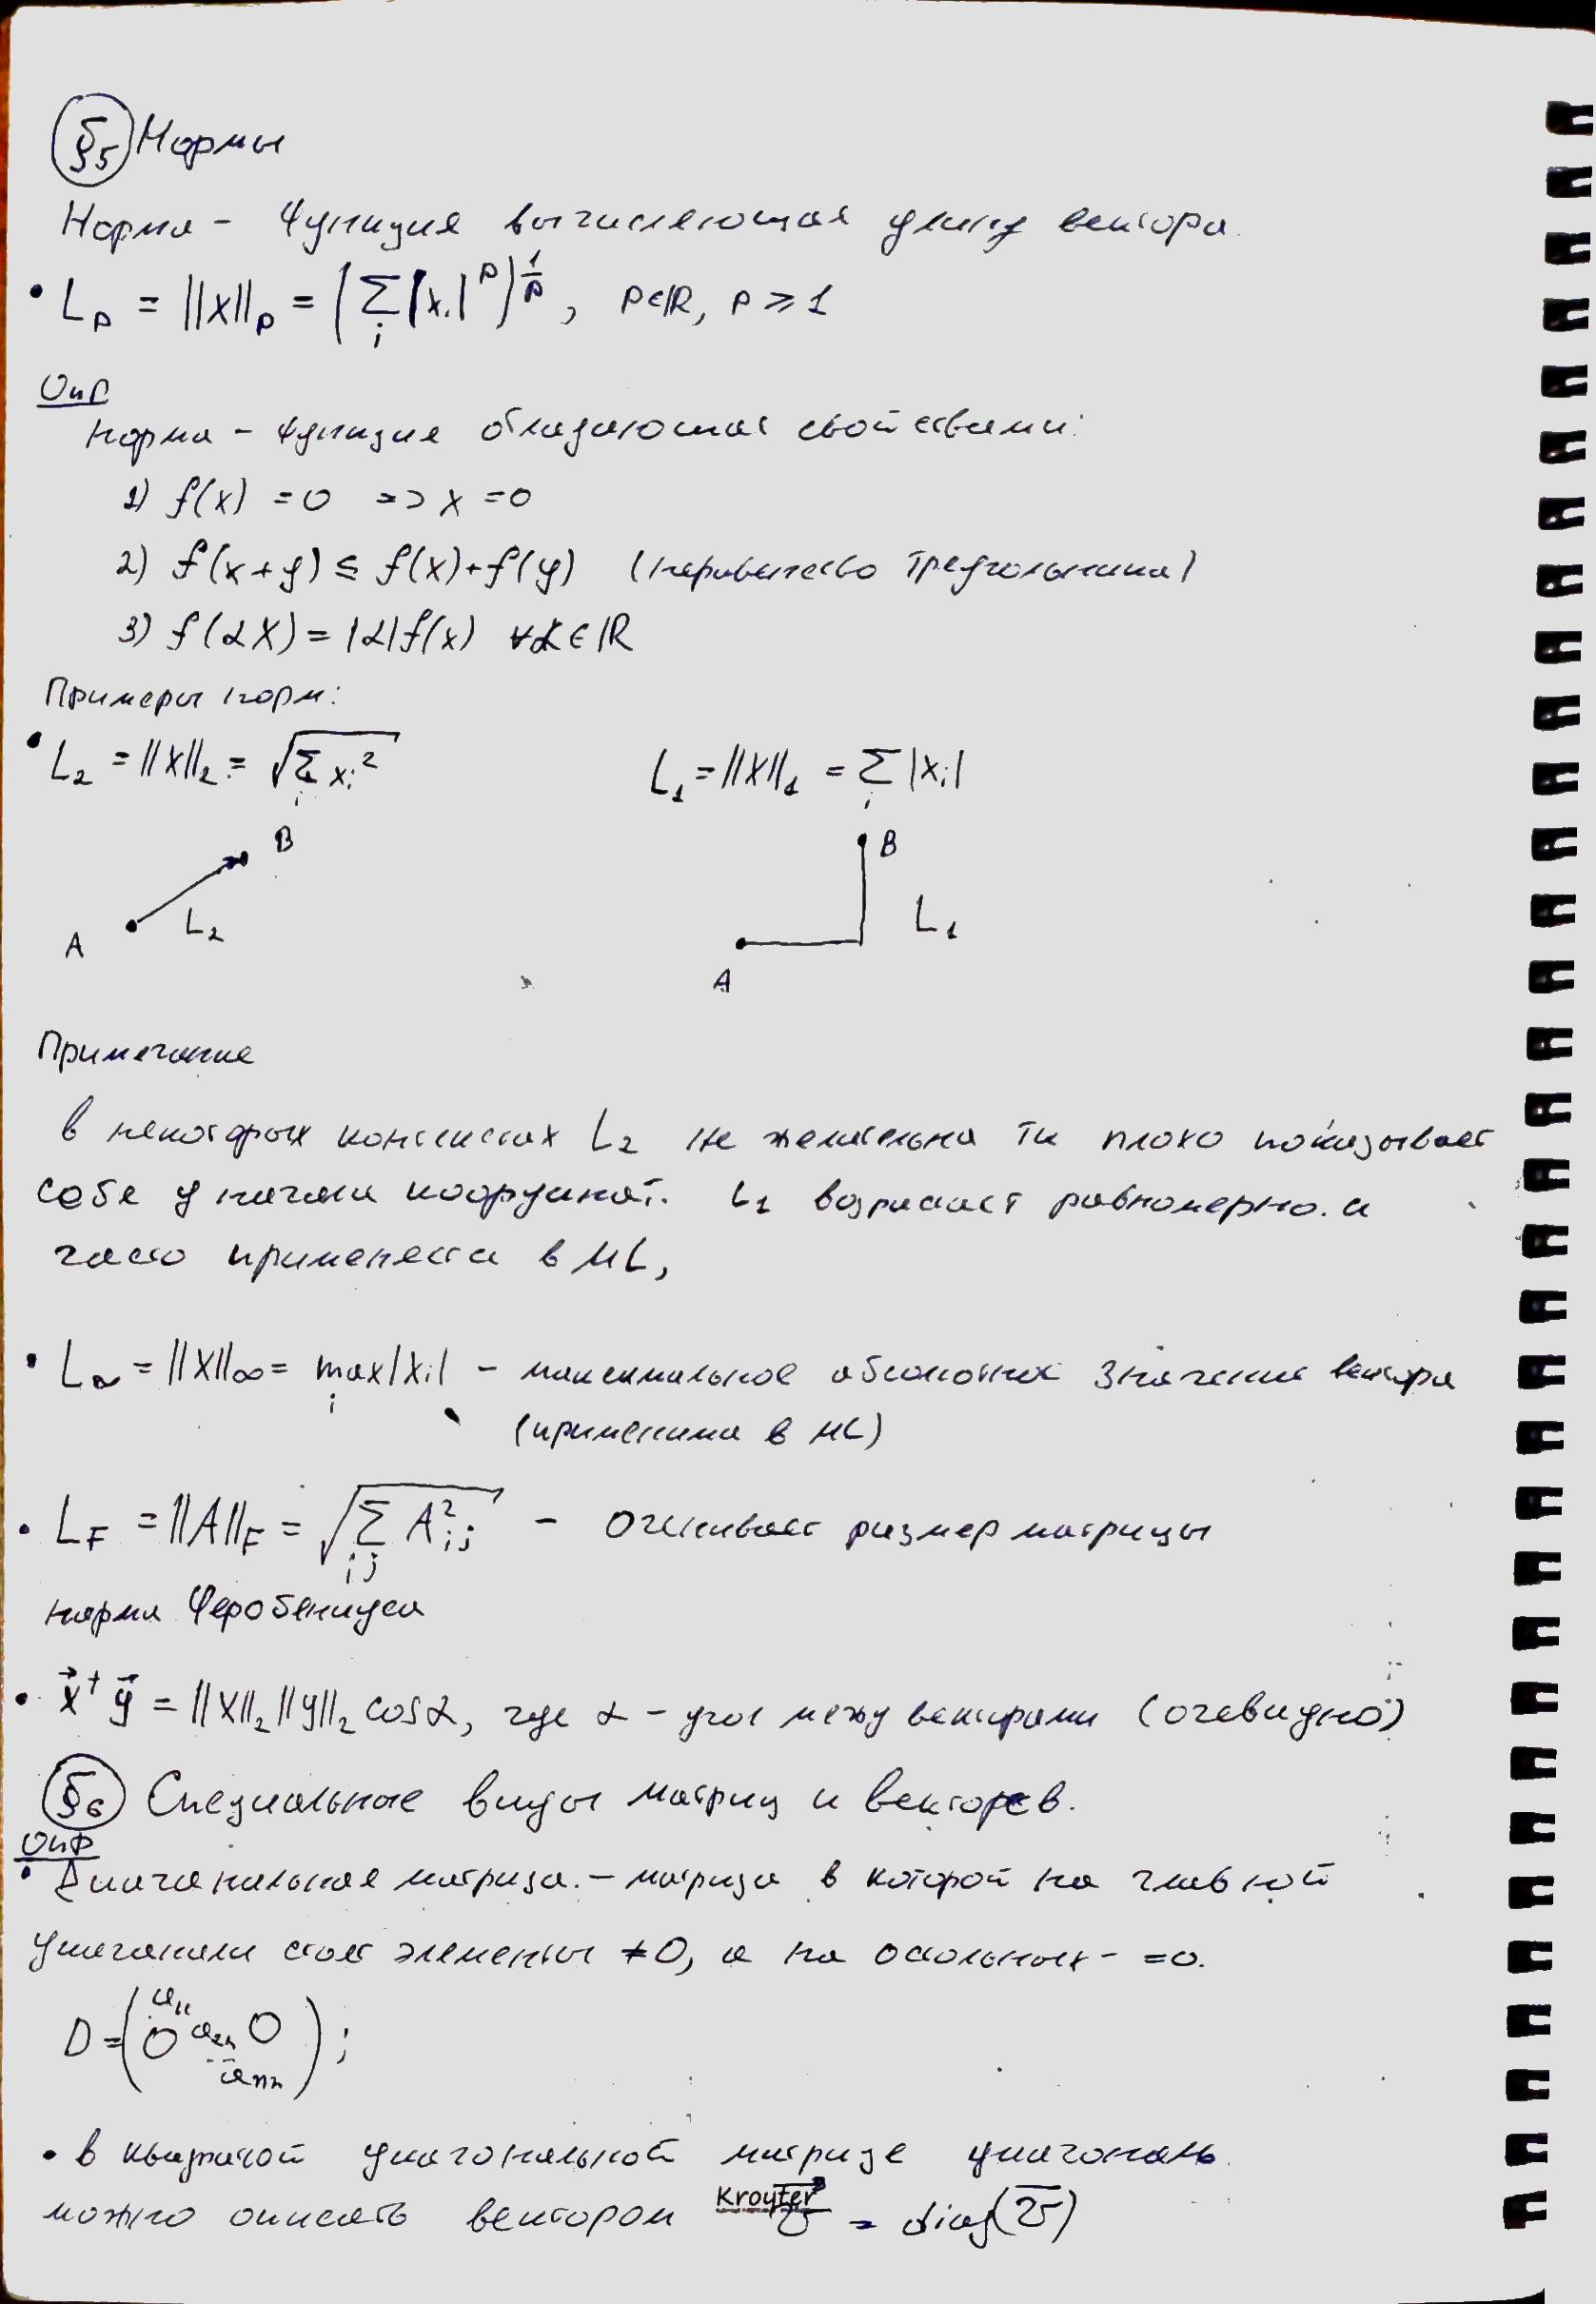 §5 Нормы
Норма - функция вычисляющая длину вектора.
• Lp = ||x||p = (∑i |xi|^p)^(1/p), p∈ℝ, p ⩾ 1
Опр
Норма - функция обладающая свойствами:
1) f(x) = 0 => x = 0
2) f(x+y) ≤ f(x)+f(y) (неравенство треугольника)
3) f(αx) = |α|f(x) ∀α∈ℝ
Примеры норм:
• L2 = ||x||2 = √∑i xi² L1 = ||x||1 = ∑i |xi|
A L2 B A L1 B
Примечание
в некоторых контекстах L2 не желательна тк плохо показывает
себя у начала координат. L1 возрастает равномерно. и
часто применяется в ML,
• L∞ = ||x||∞ = max i |xi| - максимальное абсолютное значение вектора
(применима в ML)
• LF = ||A||F = √∑i,j A²i,j - Оценивает размер матрицы
норма Феробениуса
• x⃗ᵀ y⃗ = ||x||2 ||y||2 cosα, где α - угол между векторами (очевидно)
§6 Специальные виды матриц и векторов.
Опр
• Диагональная матрица. - матрица в которой на главной
диагонали стоят элементы ≠0, а на остальных - =0.
D = (a11 0 a22 0 ... ann);
• в квадратной диагональной матрице диагональ
можно описать вектором Kroyter v = diag(v)